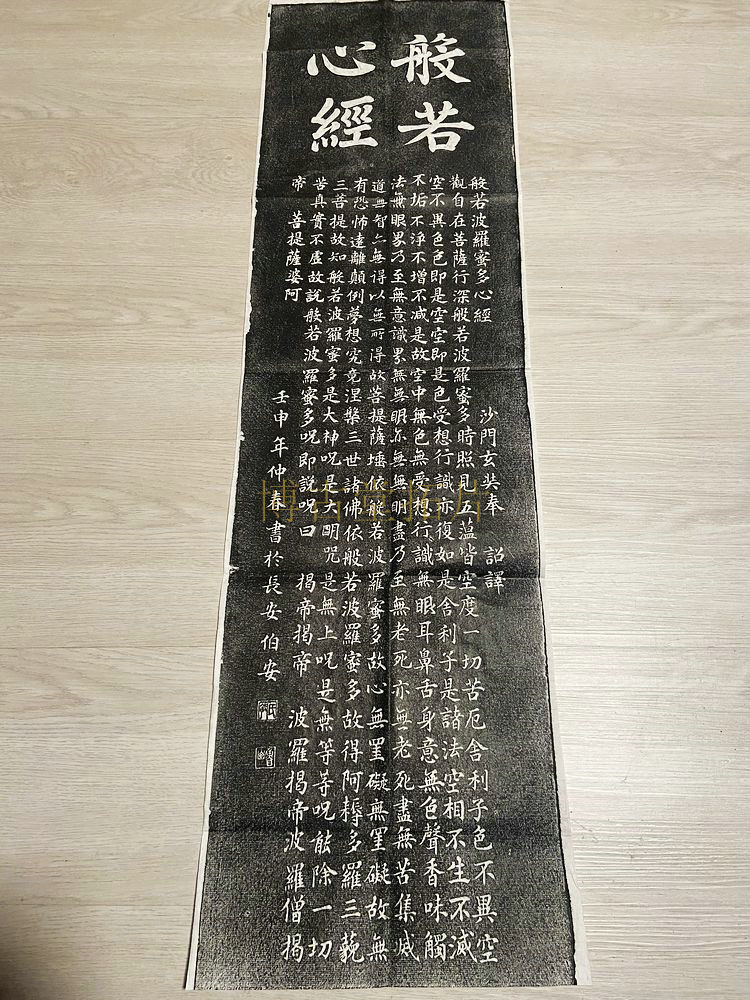 般若
心經
般若波羅蜜多心經 沙門玄奘奉 詔譯
觀自在菩薩行深般若波羅蜜多時照見五蕰皆空度一切苦厄舍利子色不異空
空不異色色即是空空即是色受想行識亦復如是舍利子是諸法空相不生不滅
不垢不淨不增不減是故空中無色無受想行識無眼耳鼻舌身意無色聲香味觸
法無眼界乃至無意識界無無明亦無無明盡乃至無老死亦無老死盡無苦集滅
道無智亦無得以無所得故菩提薩埵依般若波羅蜜多故心無罣礙無罣礙故無
有恐怖遠離顛倒夢想究竟涅槃三世諸佛依般若波羅蜜多故得阿耨多羅三藐
三菩提故知般若波羅蜜多是大神呪是大明咒是無上呪是無等等呪能除一切
苦真實不虛故說般若波羅蜜多呪即說呪曰 揭帝揭帝 波羅揭帝波羅僧揭
帝 菩提薩婆阿
壬申年仲春書於長安 伯安
博古 拓片